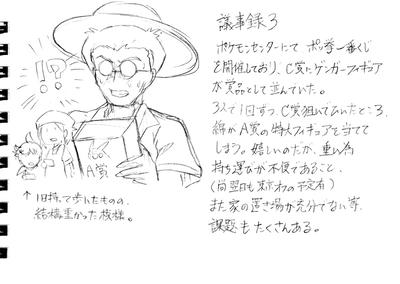 !?
A賞
↑1日持って歩いたものの、
結構重かった模様。
議事録3
ポケモンセンターにて ポッ拳一番くじ
を開催しており、C賞にゲンガーフィギュア
が賞品として並んでいた。
3人で1回ずつ、C賞狙いでひいたところ、
綿がA賞の特大フィギュアを当てて
しまう。嬉しいのだが、重い為
持ち運びが不便であること、
(尚翌日も東京オフの予定有)
また家の置き場が充分でない等、
課題もたくさんある。